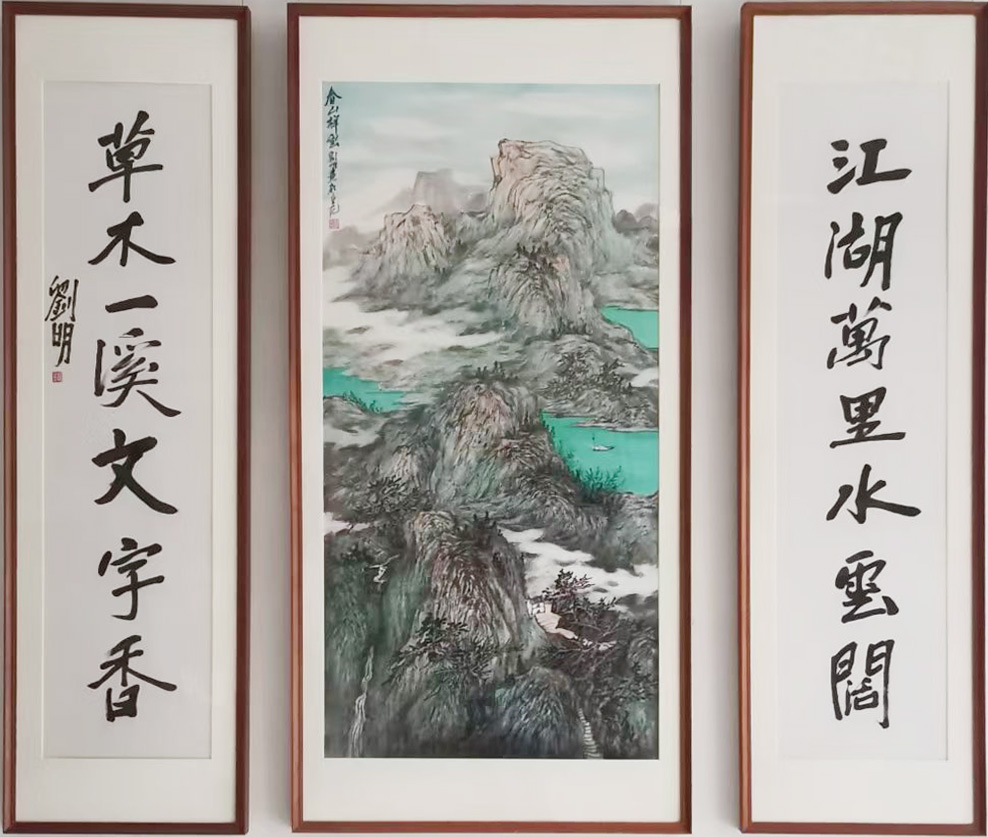 江湖萬里水雲闊
春山祥雲
草木一溪文字香
劉明